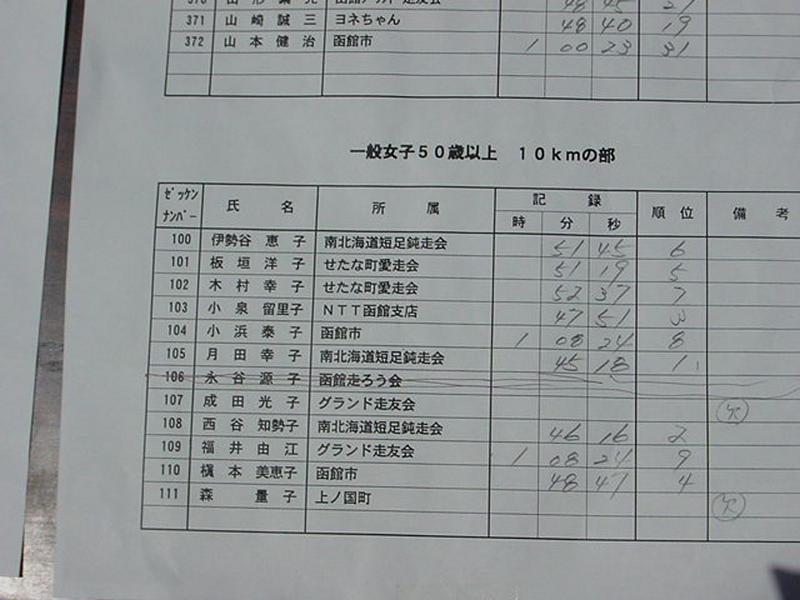 371 山崎誠三 ヨネちゃん 48 40 19
372 山本健治 函館市 1 00 23 31
一般女子50歳以上 10kmの部
ｾﾞｯｹﾝﾅﾝﾊﾞｰ 氏名 所属 記録 順位 備考
時 分 秒
100 伊勢谷 恵子 南北海道短足鈍走会 51 45 6
101 板垣洋子 せたな町愛走会 51 19 5
102 木村幸子 せたな町愛走会 52 37 7
103 小泉 留里子 NTT函館支店 47 51 3
104 小浜泰子 函館市 1 08 24 8
105 月田幸子 南北海道短足鈍走会 45 18 1
106 永谷源子 函館走ろう会
107 成田光子 グランド走友会 欠
108 西谷 知勢子 南北海道短足鈍走会 46 16 2
109 福井由江 グランド走友会 1 08 24 9
110 槇本 美恵子 函館市 48 47 4
111 森 量子 上ノ国町 欠